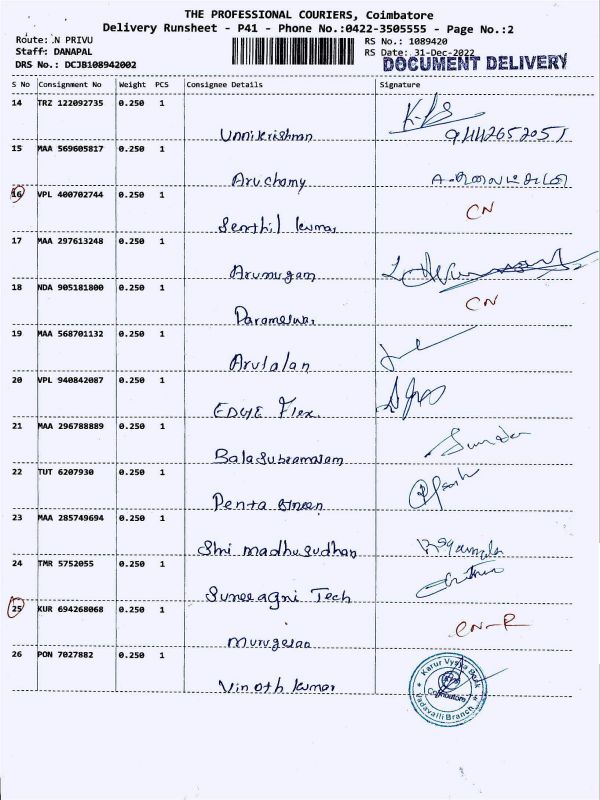 THE PROFESSIONAL COURIERS, Coimbatore
Delivery Runsheet - P41 - Phone No.:0422-3505555 - Page No.:2
Route: .N PRIVU
RS No.: 1089420
Staff: DANAPAL
RS Date: 31-Dec-2022
DRS No.: DCJB108942002
DOCUMENT DELIVERY
S No Consignment No Weight PCS Consignee Details Signature
14 TRZ 122092735 0.250 1
Unnikrishnan 9442652051
15 MAA 569605817 0.250 1
Aruchamy
16 VPL 400702744 0.250 1
Senthil kumar CN
17 MAA 297613248 0.250 1
Arumugam
18 NDA 905181800 0.250 1 CN
Parameswar
19 MAA 568701132 0.250 1
Arulalan
20 VPL 940842087 0.250 1
EDGE Flex.
21 MAA 296788889 0.250 1
Balasubramaiam
22 TUT 6207930 0.250 1
Penta
23 MAA 285749694 0.250 1
Shri madhusudhan
24 TMR 5752055 0.250 1
Suneeagni Tech
25 KUR 694268068 0.250 1
Murugesan CN-R
26 PON 7027882 0.250 1
Vinoth kumar
Karur Vysya Bank
Coimbatore
Vadavalli Branch